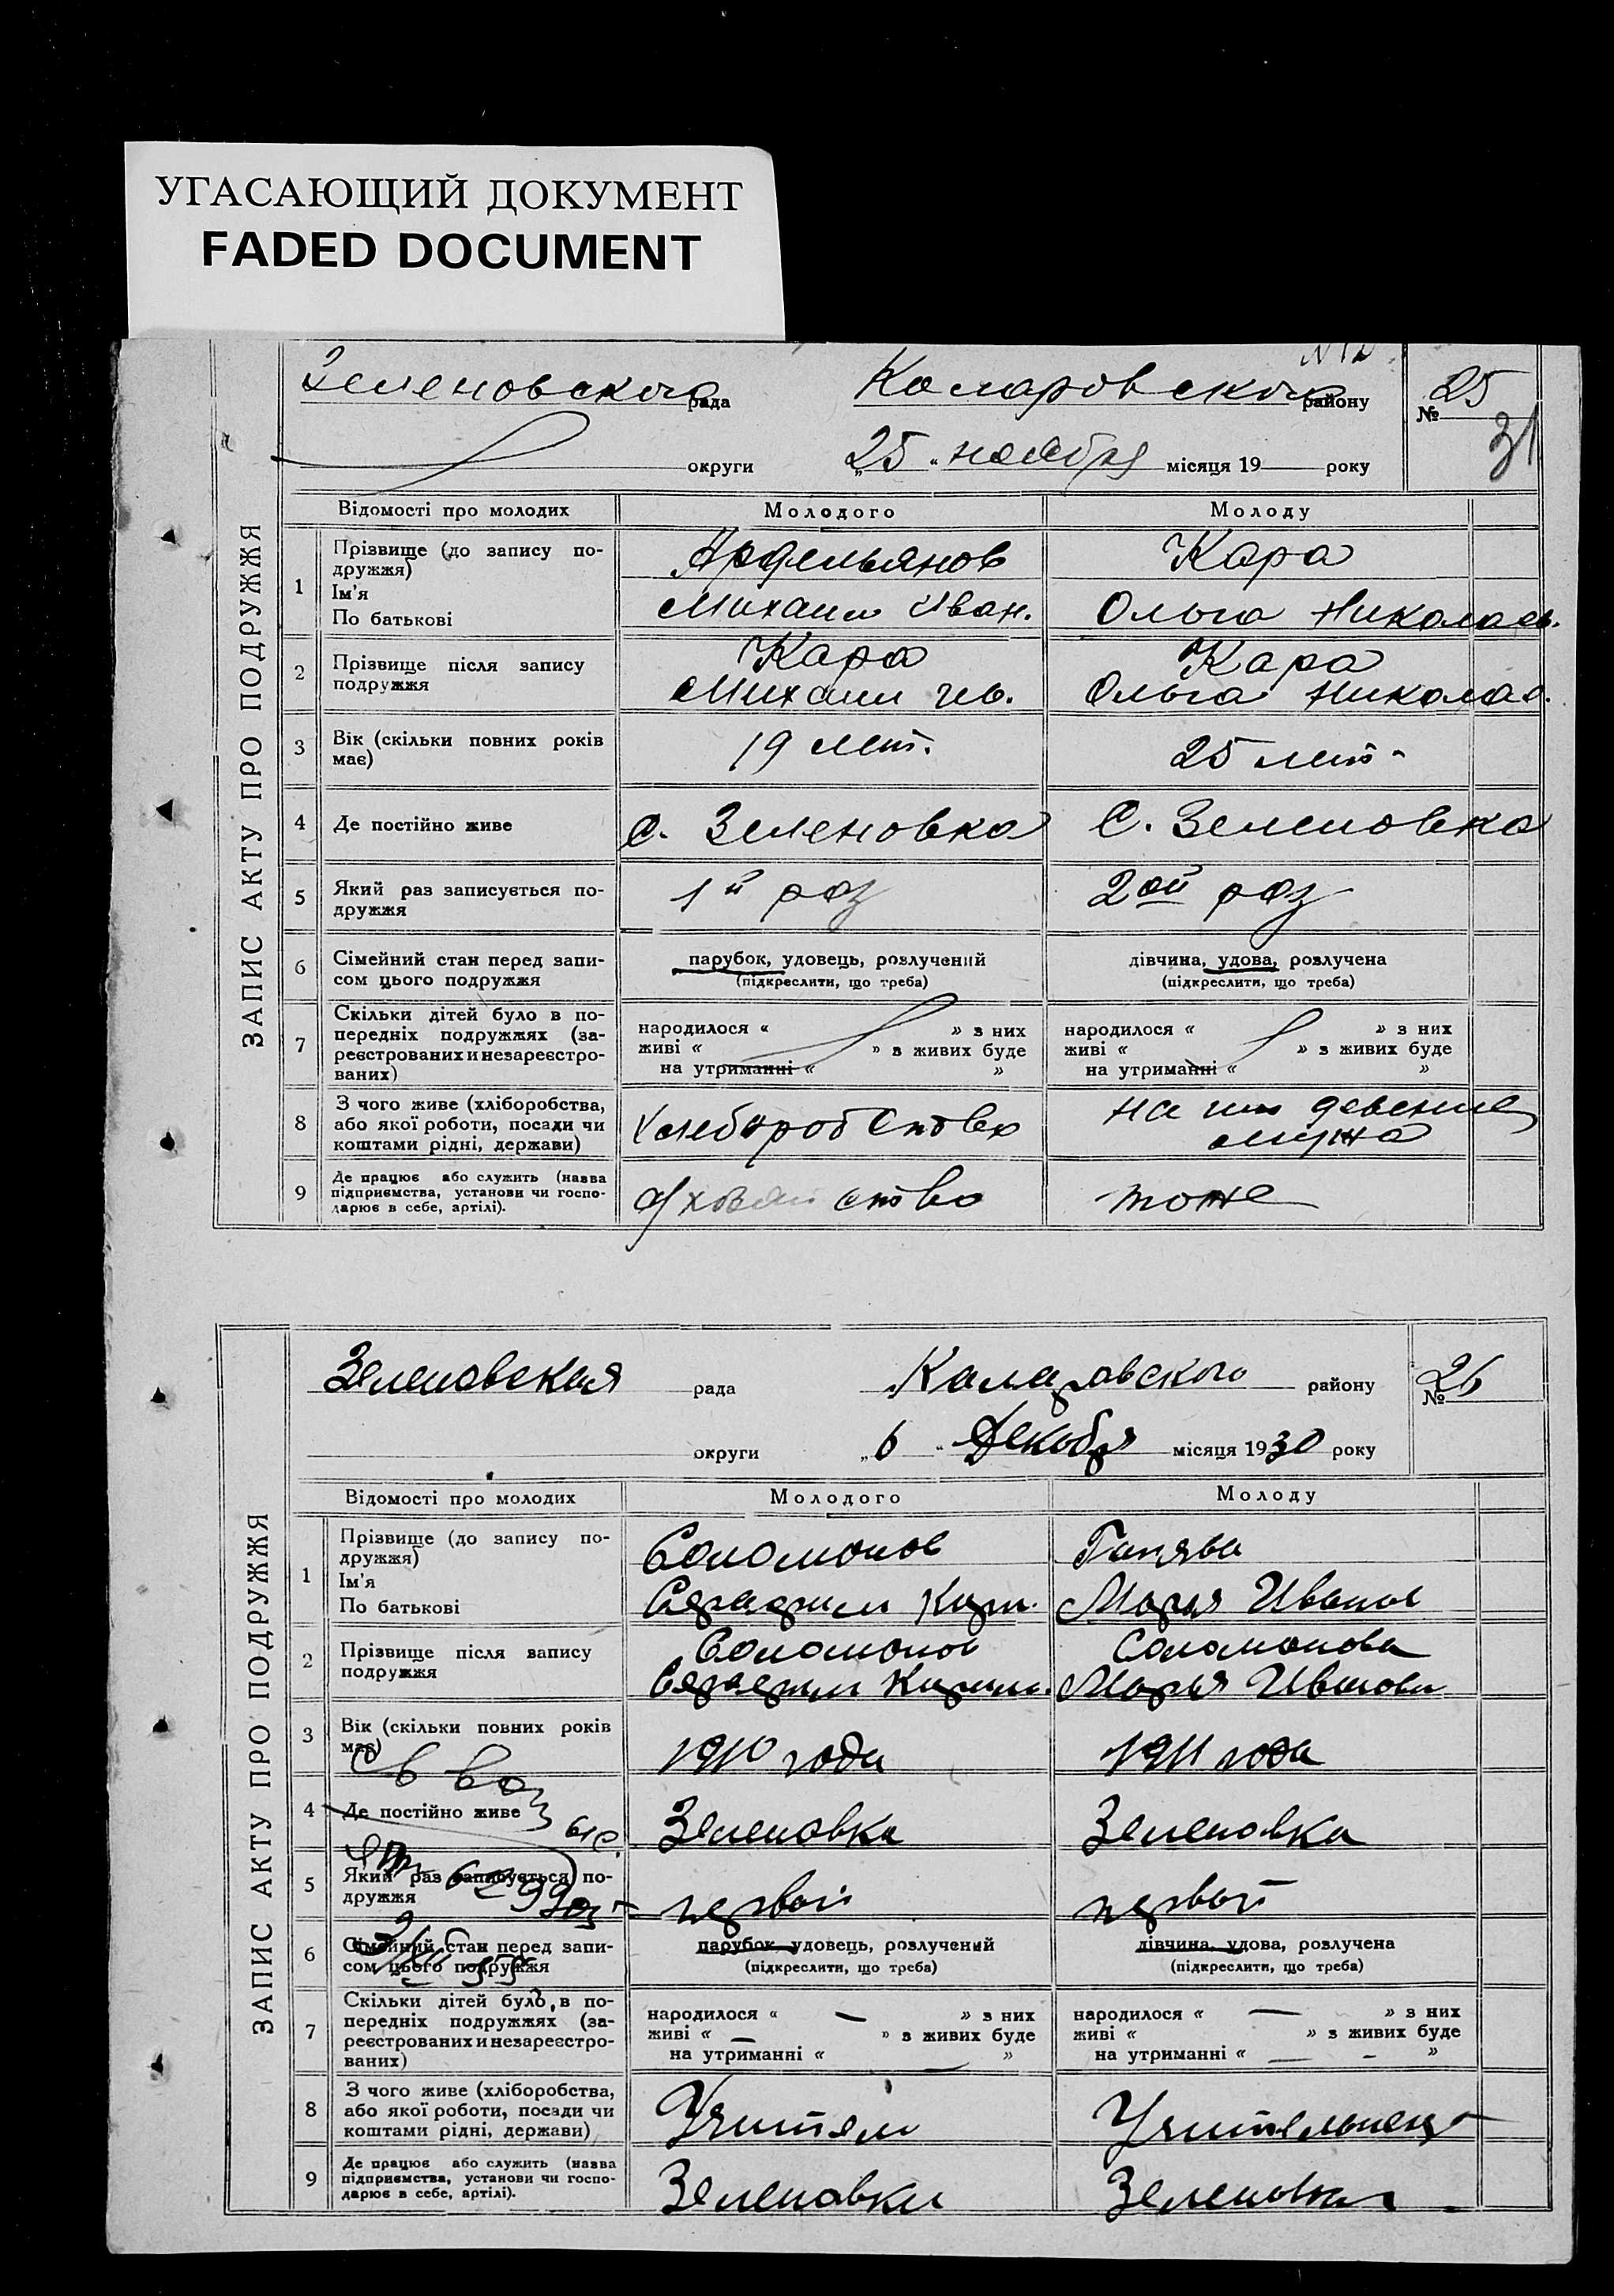 УГАСАЮЩИЙ ДОКУМЕНТ
FADED DOCUMENT
ЗАПИС АКТУ ПРО ПОДРУЖЖЯ
Зеленовского рада Коларовского району № 25
31
округи „25“ ноября місяця 19 року
Відомості про молодих Молодого Молоду
1 Прізвище (до запису по-
дружжя)
Ім'я
По батькові
Арфельянов Кара
Михаил Иван. Ольга Николаев.
2 Прізвище після запису
подружжя
Кара Кара
Михаил Ив. Ольга Николаев.
3 Вік (скільки повних років
має)
19 лет. 25 лет
4 Де постійно живе с. Зеленовка С. Зеленовка
5 Який раз записується по-
дружжя
1й раз 2ой раз
6 Сімейний стан перед запи-
сом цього подружжя
парубок, удовець, розлучений дівчина, удова, розлучена
(підкреслити, що треба) (підкреслити, що треба)
7 Скільки дітей було в по-
передніх подружжях (за-
реєстрованих и незареєстро-
ваних)
народилося « » з них народилося « » з них
живі « » з живих буде живі « » з живих буде
на утриманні « » на утриманні « »
8 З чого живе (хліборобства,
або якої роботи, посади чи
коштами рідні, держави)
Хлеборобство на
мужа
9 Де працює або служить (назва
підприємства, установи чи госпо-
дарює в себе, артілі).
тоже
ЗАПИС АКТУ ПРО ПОДРУЖЖЯ
Зеленовская рада Коларовского району № 26
округи „6“ Декабря місяця 1930 року
Відомості про молодих Молодого Молоду
1 Прізвище (до запису по-
дружжя)
Ім'я
По батькові
Соломонов
Серафим Кирил. Мария Иванов
2 Прізвище після запису
подружжя
Соломонов Соломонова
Серафим Кирил. Мария Иванова
3 Вік (скільки повних років
має)
1910 года 1911 года
4 Де постійно живе Зеленовка Зеленовка
5 Який раз записується по-
дружжя
первый первый
6 Сімейний стан перед запи-
сом цього подружжя
парубок, удовець, розлучений дівчина, удова, розлучена
(підкреслити, що треба) (підкреслити, що треба)
7 Скільки дітей було в по-
передніх подружжях (за-
реєстрованих и незареєстро-
ваних)
народилося « — » з них народилося « — » з них
живі « — » з живих буде живі « » з живих буде
на утриманні « — » на утриманні « — - »
8 З чого живе (хліборобства,
або якої роботи, посади чи
коштами рідні, держави)
Учитель Учительница
9 Де працює або служить (назва
підприємства, установи чи госпо-
дарює в себе, артілі).
Зеленовка Зеленовка